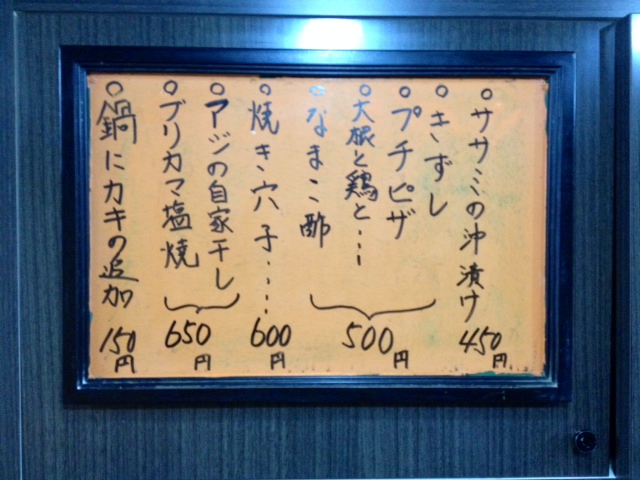 ○ササミの沖漬け 450円
○きずし
○プチピザ
○大根と鶏と…
○なまこ酢
500円
○焼き穴子…… 600円
○アジの自家干し
○ブリカマ塩焼
650円
○鍋にカキの追加 150円